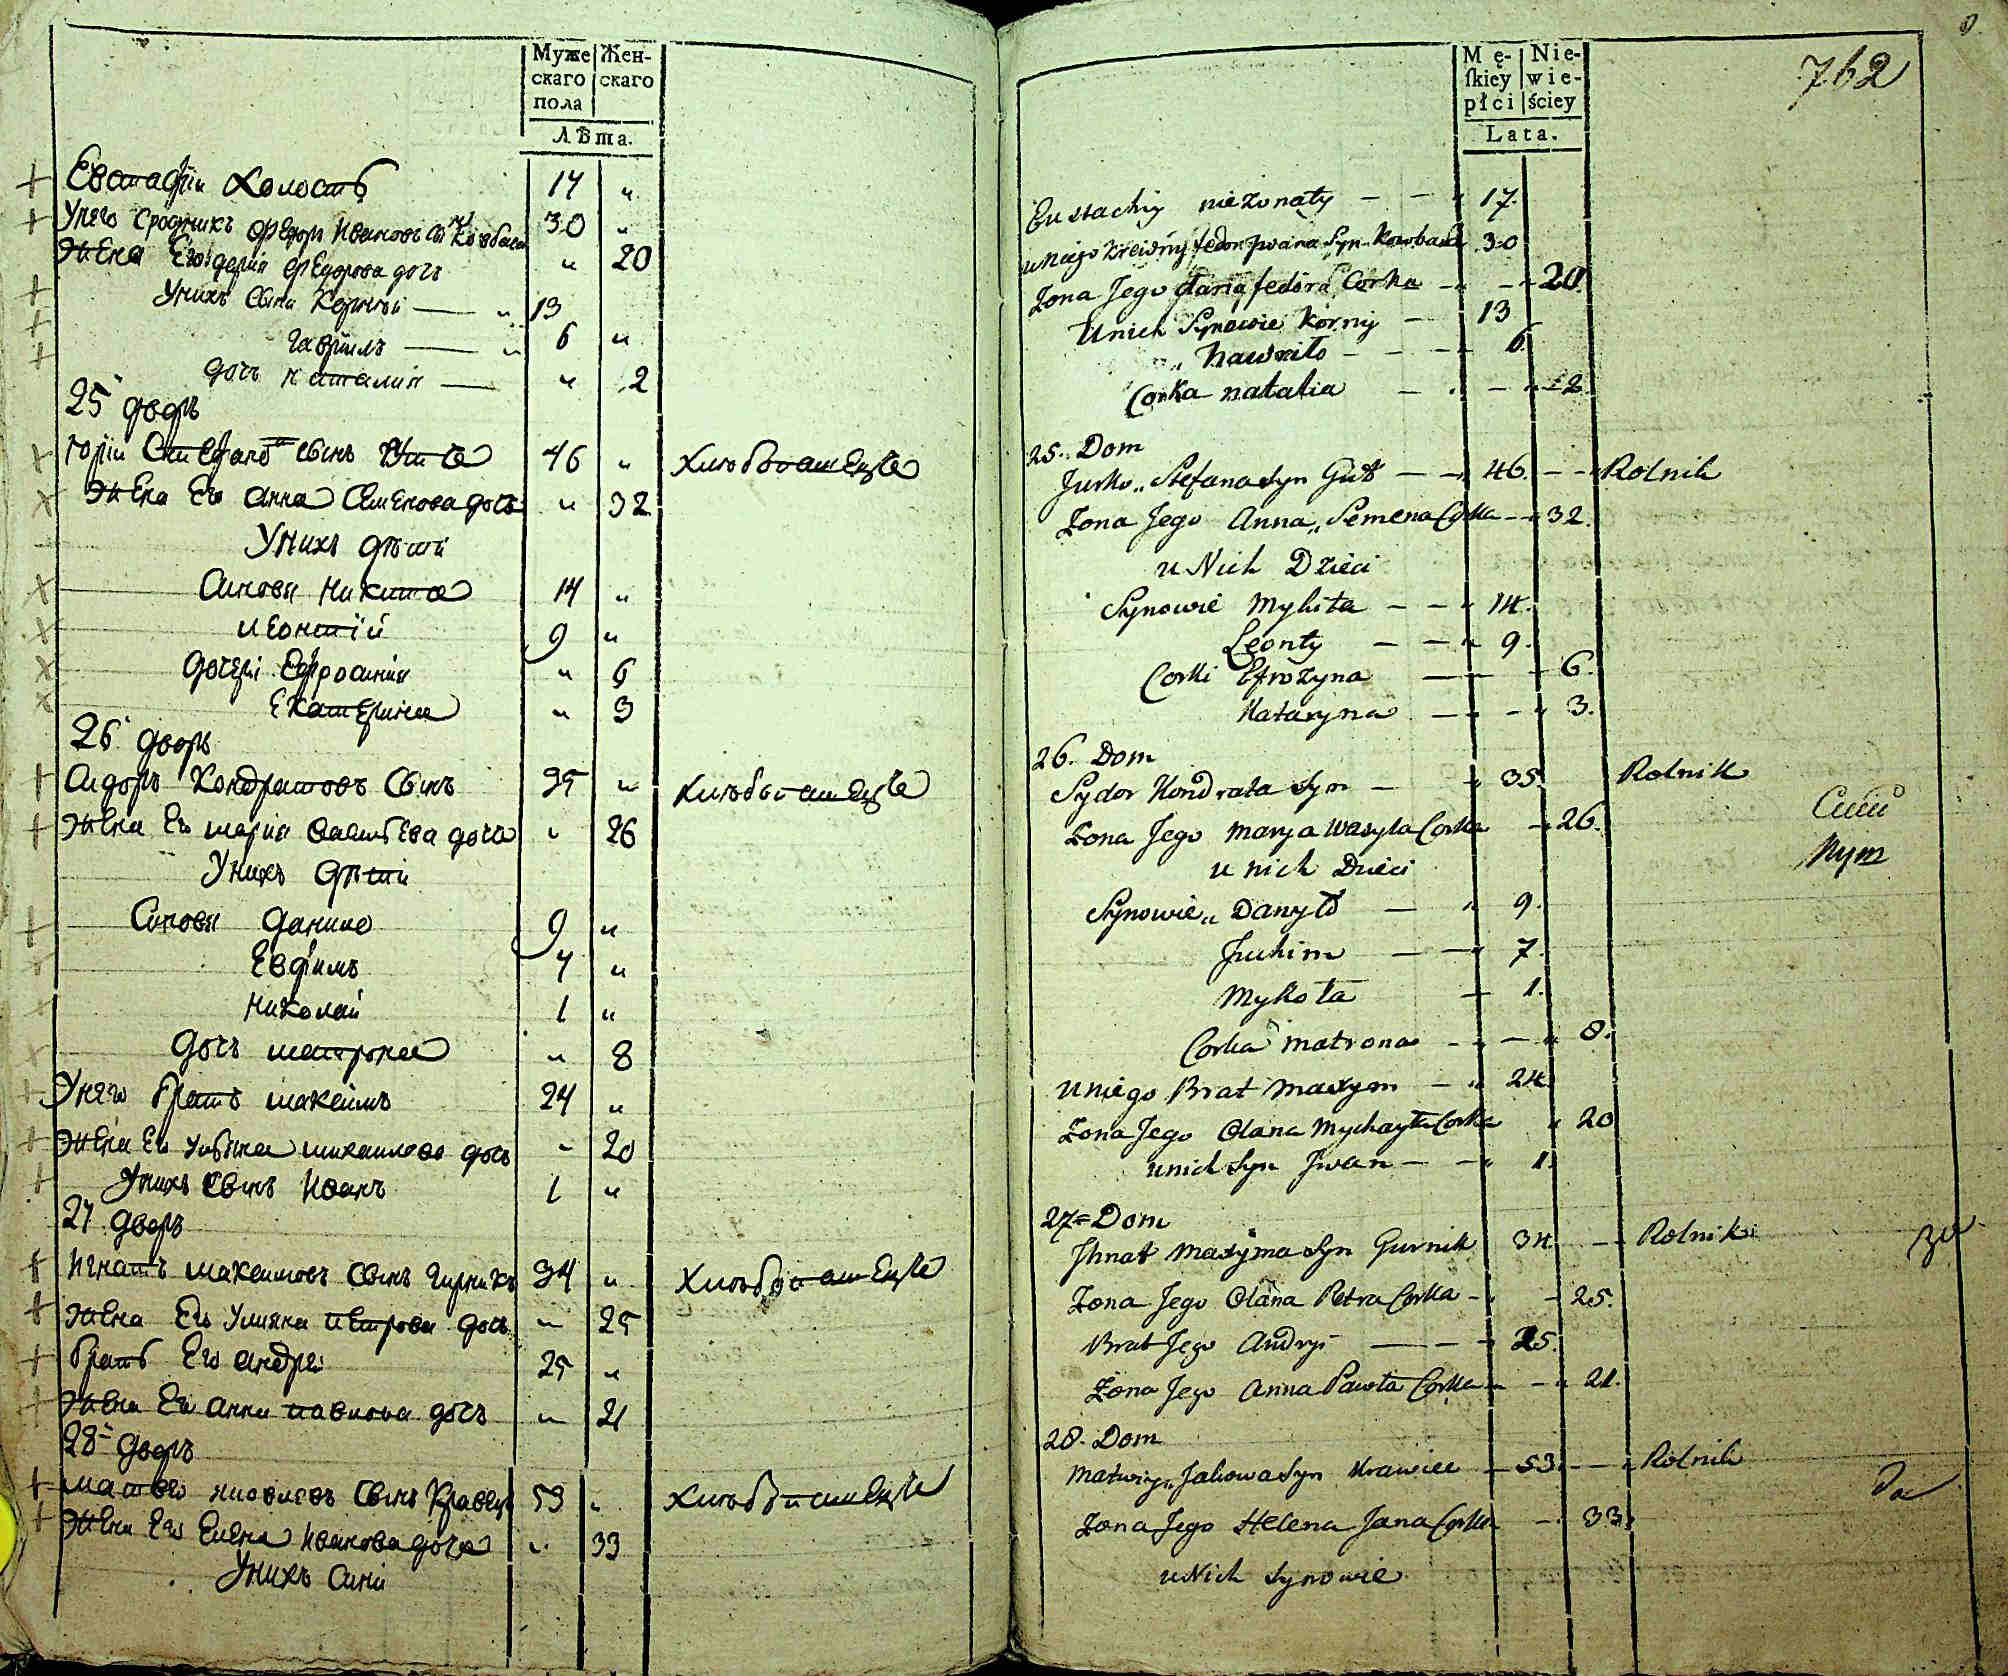 Муже скаго пола
Жен- скаго
Лѣта.
Евстафіи Холостъ 17 "
Унего сродникъ Федоръ Ивановъ сынъ Ковбаса 30 "
Жена Его дарія Федорова дочь " 20
Унихъ Сыни Корнѣй — " 13
Гаврiилъ — " 6 "
дочь наталия — " 2
25 дворъ
Юрiи Стефановъ сынъ 46 " Хлѣбопашецъ
Жена Его Анна Семенова дочь " 32
Унихъ дѣти
Синови Никита 14 "
Леонтiй 9 "
дочери Ефросиния " 6
Екатерина " 3
26 дворъ
Сидоръ Кондратовъ Сынъ 35 " Хлѣбопашецъ
Жена Ео мария Василѣева дочь " 26
Унихъ Дѣти
Синови данило 9 "
Евфимъ 7 "
Николай 1 "
Дочь матрона " 8
Унего братъ максимъ 24 "
Жена Ео Улияна михаилова дочь " 20
Унихъ Сынъ Иванъ 1 "
27 дворъ
Игнатъ максимовъ Сынъ Гурникъ 34 " Хлѣбопашецъ
Жена Его Улияна Петрова дочь " 25
братъ Его андрей 25 "
Жена Ео анна павлова дочь " 21
28 дворъ
матвей яковлевъ Сынъ Кравецъ 53 " Хлѣбопашецъ
Жена Его Елена Иванова дочь " 33
Унихъ Сини
762
Mę- skiey płci
Nie- wie- ściey
Lata.
Eustachiy nieżonaty — — " 17.
u niego Krewny fedor Jwana Syn Kowbasa 30
Żona Jego daria fedora Corka — — " 20.
Unich Synowie Korniy — 13
" hawriło — — — " 6.
Corka natalia — " — " 2
25. Dom
Jurko " Stefana Syn — — " 46. — — Rolnik
Żona Jego Anna " Semena Corka — " 32.
u Nich Dzieci
Synowie Mykita — — " 14.
Leonty — — " 9.
Corki Efrozyna — — — 6.
Kataryna — " — " 3.
26. Dom
Sydor Kondrata Syn — " 35. Rolnik
Żona Jego Marya Wasyla Corka — 26.
u nich Dzieci
Synowie " Danyło — " 9.
Juchim — — " 7.
Mykoła — 1.
Corka Matrona — " — " 8.
u niego Brat Maxym — " 24.
Żona Jego Olana Mychayła Corka " 20
unich Syn Jwan — — " 1.
27 = Dom
Jhnat Maxyma Syn Gurnik 34 — Rolnik
Żona Jego Olana Petra Corka — " — 25.
Brat Jego Andryi — — — " 25.
Żona Jego Anna Pawła Corka " — " 21.
28. Dom
Matwiy " Jakowa Syn Krawiec — 53 — — " Rolnik
Żona Jego Helena Jana Corka — 33.
u Nich Synowie